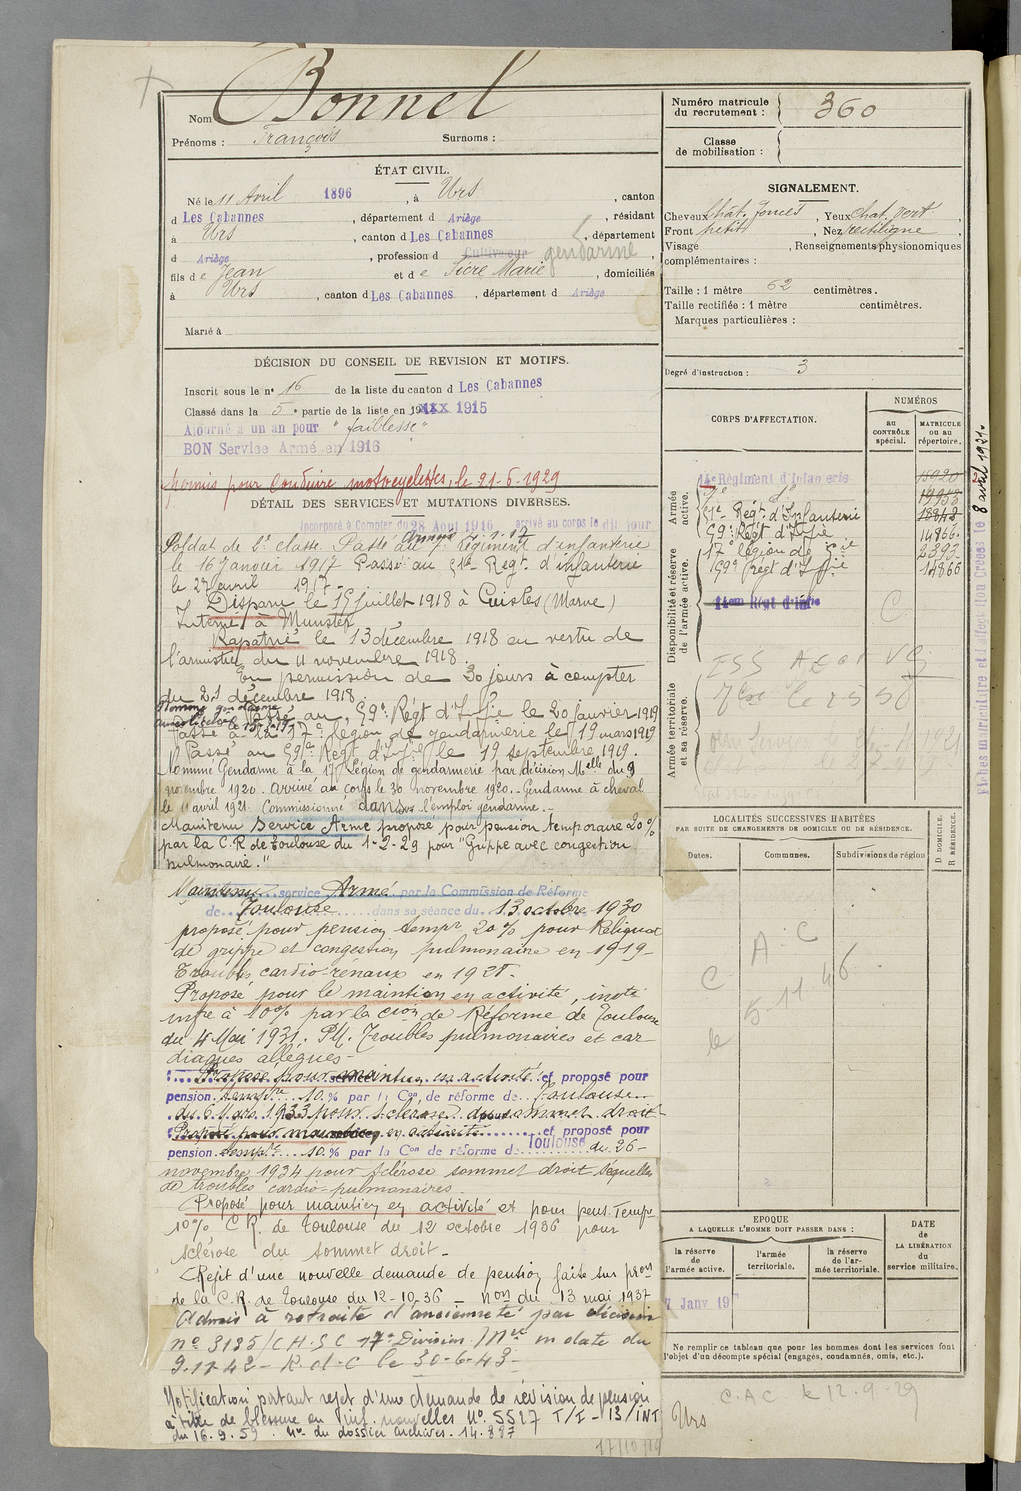 Nom Bonnel
Prénoms : François Surnoms :
Numéro matricule du recrutement : 360
Classe de mobilisation :
ÉTAT CIVIL.
Né le 11 Avril 1896, à Urs, canton
d Les Cabannes, département d Ariège, résidant
à Urs, canton d Les Cabannes, département
d Ariège, profession d Cultivateur gendarme
fils de Jean et de Sicre Marie, domiciliés
à Urs, canton d Les Cabannes, département d Ariège
Marié à
SIGNALEMENT.
Cheveux chât. foncés, Yeux chat. vert,
Front petit, Nez rectiligne
Visage , Renseignements physionomiques
complémentaires :
Taille : 1 mètre 62 centimètres.
Taille rectifiée : 1 mètre centimètres.
Marques particulières :
Degré d'instruction : 3
DÉCISION DU CONSEIL DE REVISION ET MOTIFS.
Inscrit sous le n° 16 de la liste du canton d Les Cabannes
Classé dans la 5e partie de la liste en 19 XXX 1915
Ajourné à un an pour "faiblesse"
BON Service Armé en 1916
permis pour conduire motocyclettes, le 21-6-1929
DÉTAIL DES SERVICES ET MUTATIONS DIVERSES.
Incorporé à Compter du 28 Aout 1916 arrivé au corps le dit jour
Soldat de 2e classe. Passé au 7e Régiment d'infanterie
le 16 janvier 1917 Passé au 51e Régt. d'infanterie
le 27 avril 1917
Disparu le 15 juillet 1918 à Cuisles (Marne)
Interné à Munster
Rapatrié le 13 décembre 1918 en vertu de
l'armistice du 11 novembre 1918.
En permission de 30 jours à compter
du 21 décembre 1918
Passé au 59e Régt d'Inf.ie le 20 janvier 1919
Passé à la 17e légion de gendarmerie le 19 mars 1919
Passé au 59e Régt d'Inf.ie le 19 septembre 1919.
Nommé Gendarme à la 17e Légion de gendarmerie par décision Melle du 9
novembre 1920. arrivé au corps le 30 novembre 1920. Gendarme à cheval
le 11 avril 1921. Commissionné dans l'emploi gendarme.
Maintenu Service Armé proposé pour pension temporaire 20%
par la C.R. de Toulouse du 1-2-29 pour "Grippe avec congestion
pulmonaire."
Maintenu service Armé par la Commission de Réforme
de Toulouse dans sa séance du 13 octobre 1930
proposé pour pension temp. 20% pour Reliquat
de grippe et congestion pulmonaire en 1919-
Troubles cardio-rénaux en 1928.
Proposé pour le maintien en activité, invté
infre à 10% par la Cion de Réforme de Toulouse
du 4 Mai 1931. Pr. Troubles pulmonaires et car-
diaques allégués-
Proposé pour maintien en activité et proposé pour
pension temp.re 10 % par la Con de réforme de Toulouse
du 6 1933 pour sclérose du sommet droit
Proposé pour maintien en activité et proposé pour
pension temp.re 10 % par la Con de réforme de Toulouse du 26-
novembre 1934 pour sclérose sommet droit Séquelles
de troubles cardio-pulmonaires
Proposé pour maintien en activité et pour pens. Temp.
10% C.R. de Toulouse du 12 octobre 1936 pour
sclérose du sommet droit-
Rejet d'une nouvelle demande de pension faite sur pron
de la C.R. de Toulouse du 12-10-36 - non du 13 mai 1937
Admis à retraite d'ancienneté par décision
n° 3135/CH.SC 17e Division Mre en date du
9-11-42 - R.d.C le 30-6-43-
Notification portant rejet d'une demande de révision de pension
à titre de blessure ou inf. nouvelles N° 5527 T/I - 13/INT
du 16.9.59. N° du dossier archives. 14.897
CORPS D'AFFECTATION.
NUMÉROS
AU CONTRÔLE spécial.
MATRICULE OU AU répertoire.
Armée active.
14e Régiment d'Infanterie
7e do
51e Régt. d'Infanterie
59e Régt d'Inf.ie 14866
17e légion de Gie 2393
59e Régt d'Inf.ie 14866
Disponibilité et réserve de l'armée active.
14em Régt d'Infie
C
Armée territoriale et sa réserve.
Fiches matriculaire et d'affectation Créées le 8 avril 1931.
LOCALITÉS SUCCESSIVES HABITÉES
PAR SUITE DE CHANGEMENTS DE DOMICILE OU DE RÉSIDENCE.
Dates. Communes. Subdivisions de région D DOMICILE. R RÉSIDENCE.
C A C
le 5-11 46
EPOQUE
A LAQUELLE L'HOMME DOIT PASSER DANS :
la réserve de l'armée active.
l'armée territoriale.
la réserve de l'armée territoriale.
DATE de LA LIBÉRATION du service militaire.
Janv 19
Ne remplir ce tableau que pour les hommes dont les services font
l'objet d'un décompte spécial (engagés, condamnés, omis, etc.).
C.A.C le 12-9-29
Urs